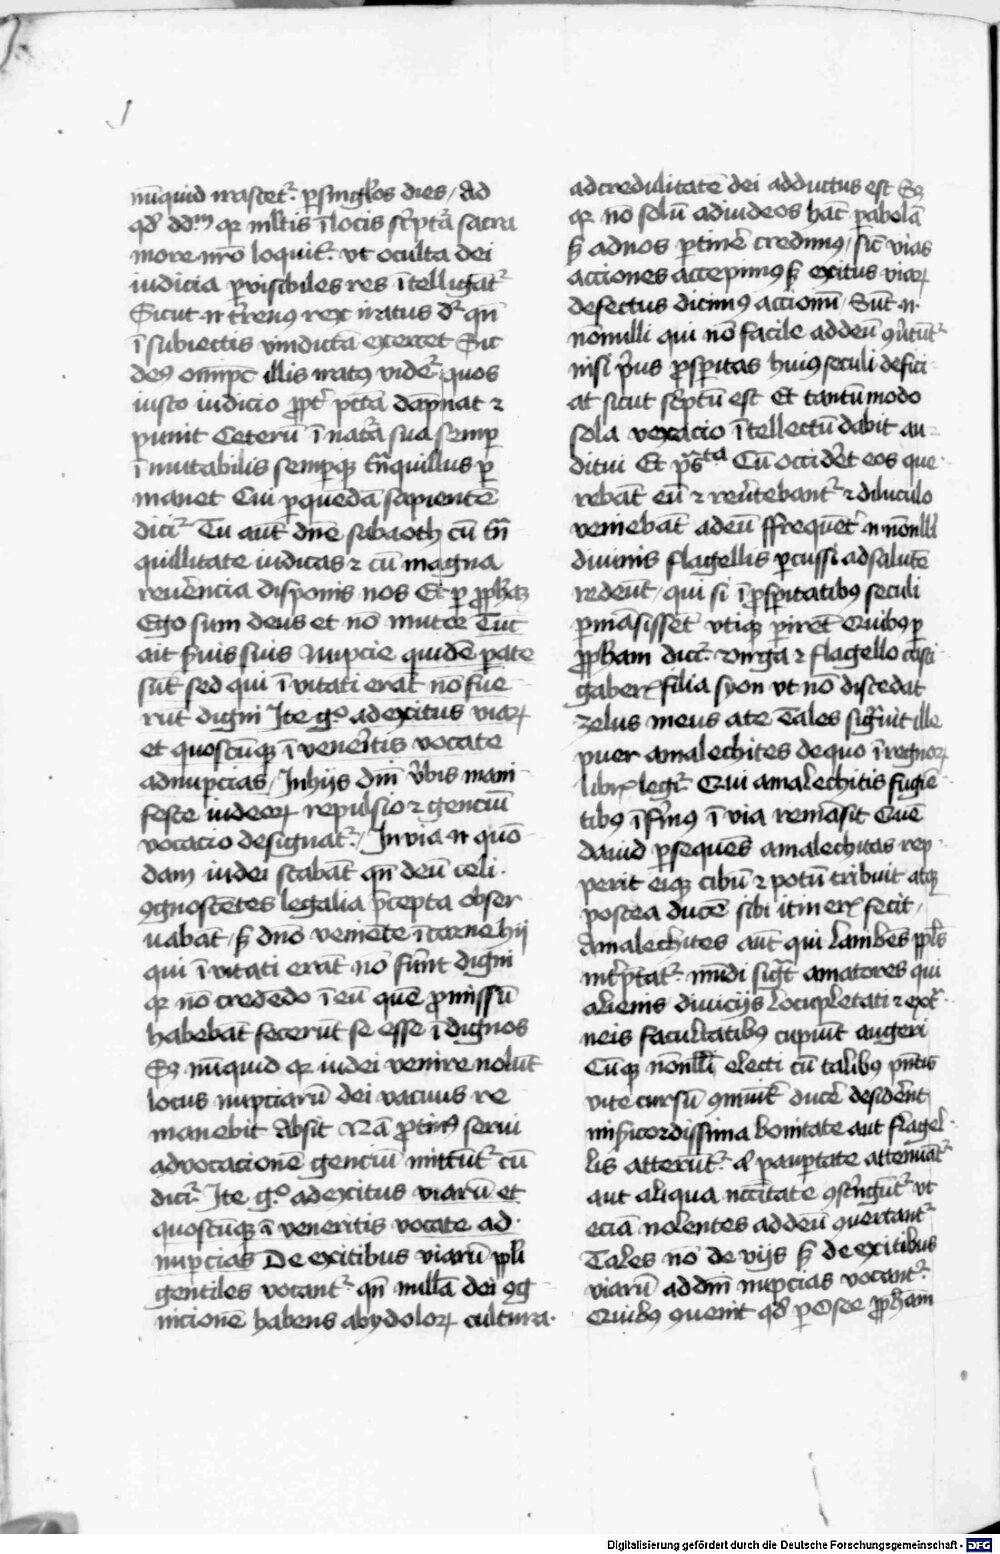 nūquid irascet᷑ ꝑ singl̄os dies / Ad
qd̄ dd̄m qr ml̄tis ī locis sc̄pta sacra
more nr̄o loquit᷑ vt oculta dei
iudicia ꝑ visibiles res ītelligāt᷑
Sicut n̄ t̄renꝰ rex iratus dr̄ qn̄
ī subiectis vindictā exercet Sic
deꝰ om̄pc illis iratꝰ vider᷑ quos
iusto iudicio ꝓpt̄ pctā dāpnat ⁊
punit Ceterū ī nat̄a sua semꝑ
ī mutabilis semperqꝫ tn̄quillus ꝑ
manet Cui ꝑ quendā sapientē
dicit᷑ Tu aut̄ dn̄e sabaoth cū tn̄
quillitate iudicas ⁊ cū magna
reuerencia disponis nos Et ꝑ ꝓph̄az
Ego sum deus et nō mutor Tūc
ait s̄uis suis Nupcie quidē pate
sūt sed qui ī vitati erāt nō fue
rūt digni Ite gͦ ad exitus viaꝝ
et quoscūqꝫ ī veneritis vocate
ad nupcias / In hijs dn̄i v̄bis mani
feste iudeoꝝ repulsio ⁊ genciū
vocacio designat᷑ / In via n̄ quō
dam iudei stabāt qn̄ deū celi
ꝯgnoscētes legalia p̄cepta obser
uabāt / sꝫ dn̄o veniēte ī carne hij
qui ī vitati erāt nō fūnt digni
qr nō credēdo ī eū quē ꝓmissū
habebāt fecerūt se esse ī dignos
Sꝫ nūquid qr iudei venire nolūt
locus nupciarū dei vacuus re
manebit Absit Nā ꝓtinꝰ serui
ad vocacionē genciū mittūt᷑ cū
dicit᷑ Ite gͦ ad exitus viarū et
quoscūqꝫ ī veneritis vocate ad
nupcias De exitibus viarū pp̄li
gentiles vocant᷑ qn̄ nullā dei ꝯg
nicionē habens ab ydoloꝝ cultura
ad credulitatē dei adductus est Sꝫ
qr nō solū ad iudeos hāc ꝑabolā
sꝫ ad nos ꝑtinēr credimꝰ / sic̄ vias
acciones accepimꝰ sꝫ exitus viaꝝ
defectus dicimꝰ accionū / Sūt n̄
nōnulli qui nō facile ad deū ꝯūtūt᷑
nisi p̄us ꝓsꝑitas huiꝰ seculi defici
at sicut sc̄ptū est Et tantūmodo
sola vexacio ītellectū dabit au
ditui Et ps̄ta Cū occidēt eos que
rebāt eū ⁊ reūtebant᷑ ⁊ diluculo
veniebāt ad eū ffrequēt᷑ n̄ nōnll̄i
diuinis flagellis ꝑcussi ad salutē
redeūt / qui si ī ꝓsꝑitatibꝰ seculi
ꝑmāsissēt vtiqꝫ ꝑirēt Quibꝰ ꝑ
ꝓph̄am dicit᷑ Virga ⁊ flagello casti
gaberꝭ filia syon vt nō discedat
zelus meus a te Tales sig̊uit ille
puer amalechites de quo ī regnoꝝ
librꝭ legit᷑ Qui amalechitis fugiē
tibꝰ īfirmꝰ ī via remāsit Quē
dauid ꝑsequēs amalechitas rep
perit eiqꝫ cibū ⁊ potū tribuit atqꝫ
postea ducē sibi itinerꝭ fecit /
Amalechites aut̄ qui lambēs pp̄ls̄
int̄ptat᷑ mūdi sig̊t amatores qui
alienis diuicijs locupletati ⁊ ext̄
neis facultatibꝰ cupiūt augeri
Cūqꝫ nōnll̄i electi cū talibꝰ pn̄tis
vite cursū ꝯmūit᷑ ducēr desidēnt
mis̄icordissima bonitate aut flagel
lis atterūt᷑ aꝉ pauꝑtate attenuāt᷑
aut aliqua nccītate ꝯstringūt᷑ vt
eciā nolentes ad deū ꝯuertant᷑
Tales nō de vijs sꝫ de exitibus
viarū ad dn̄i nupcias vocant᷑
Quibꝰ ꝯuenit qd̄ ꝑ Osee ꝓph̄am
Digitalisierung gefördert durch die Deutsche Forschungsgemeinschaft - DFG